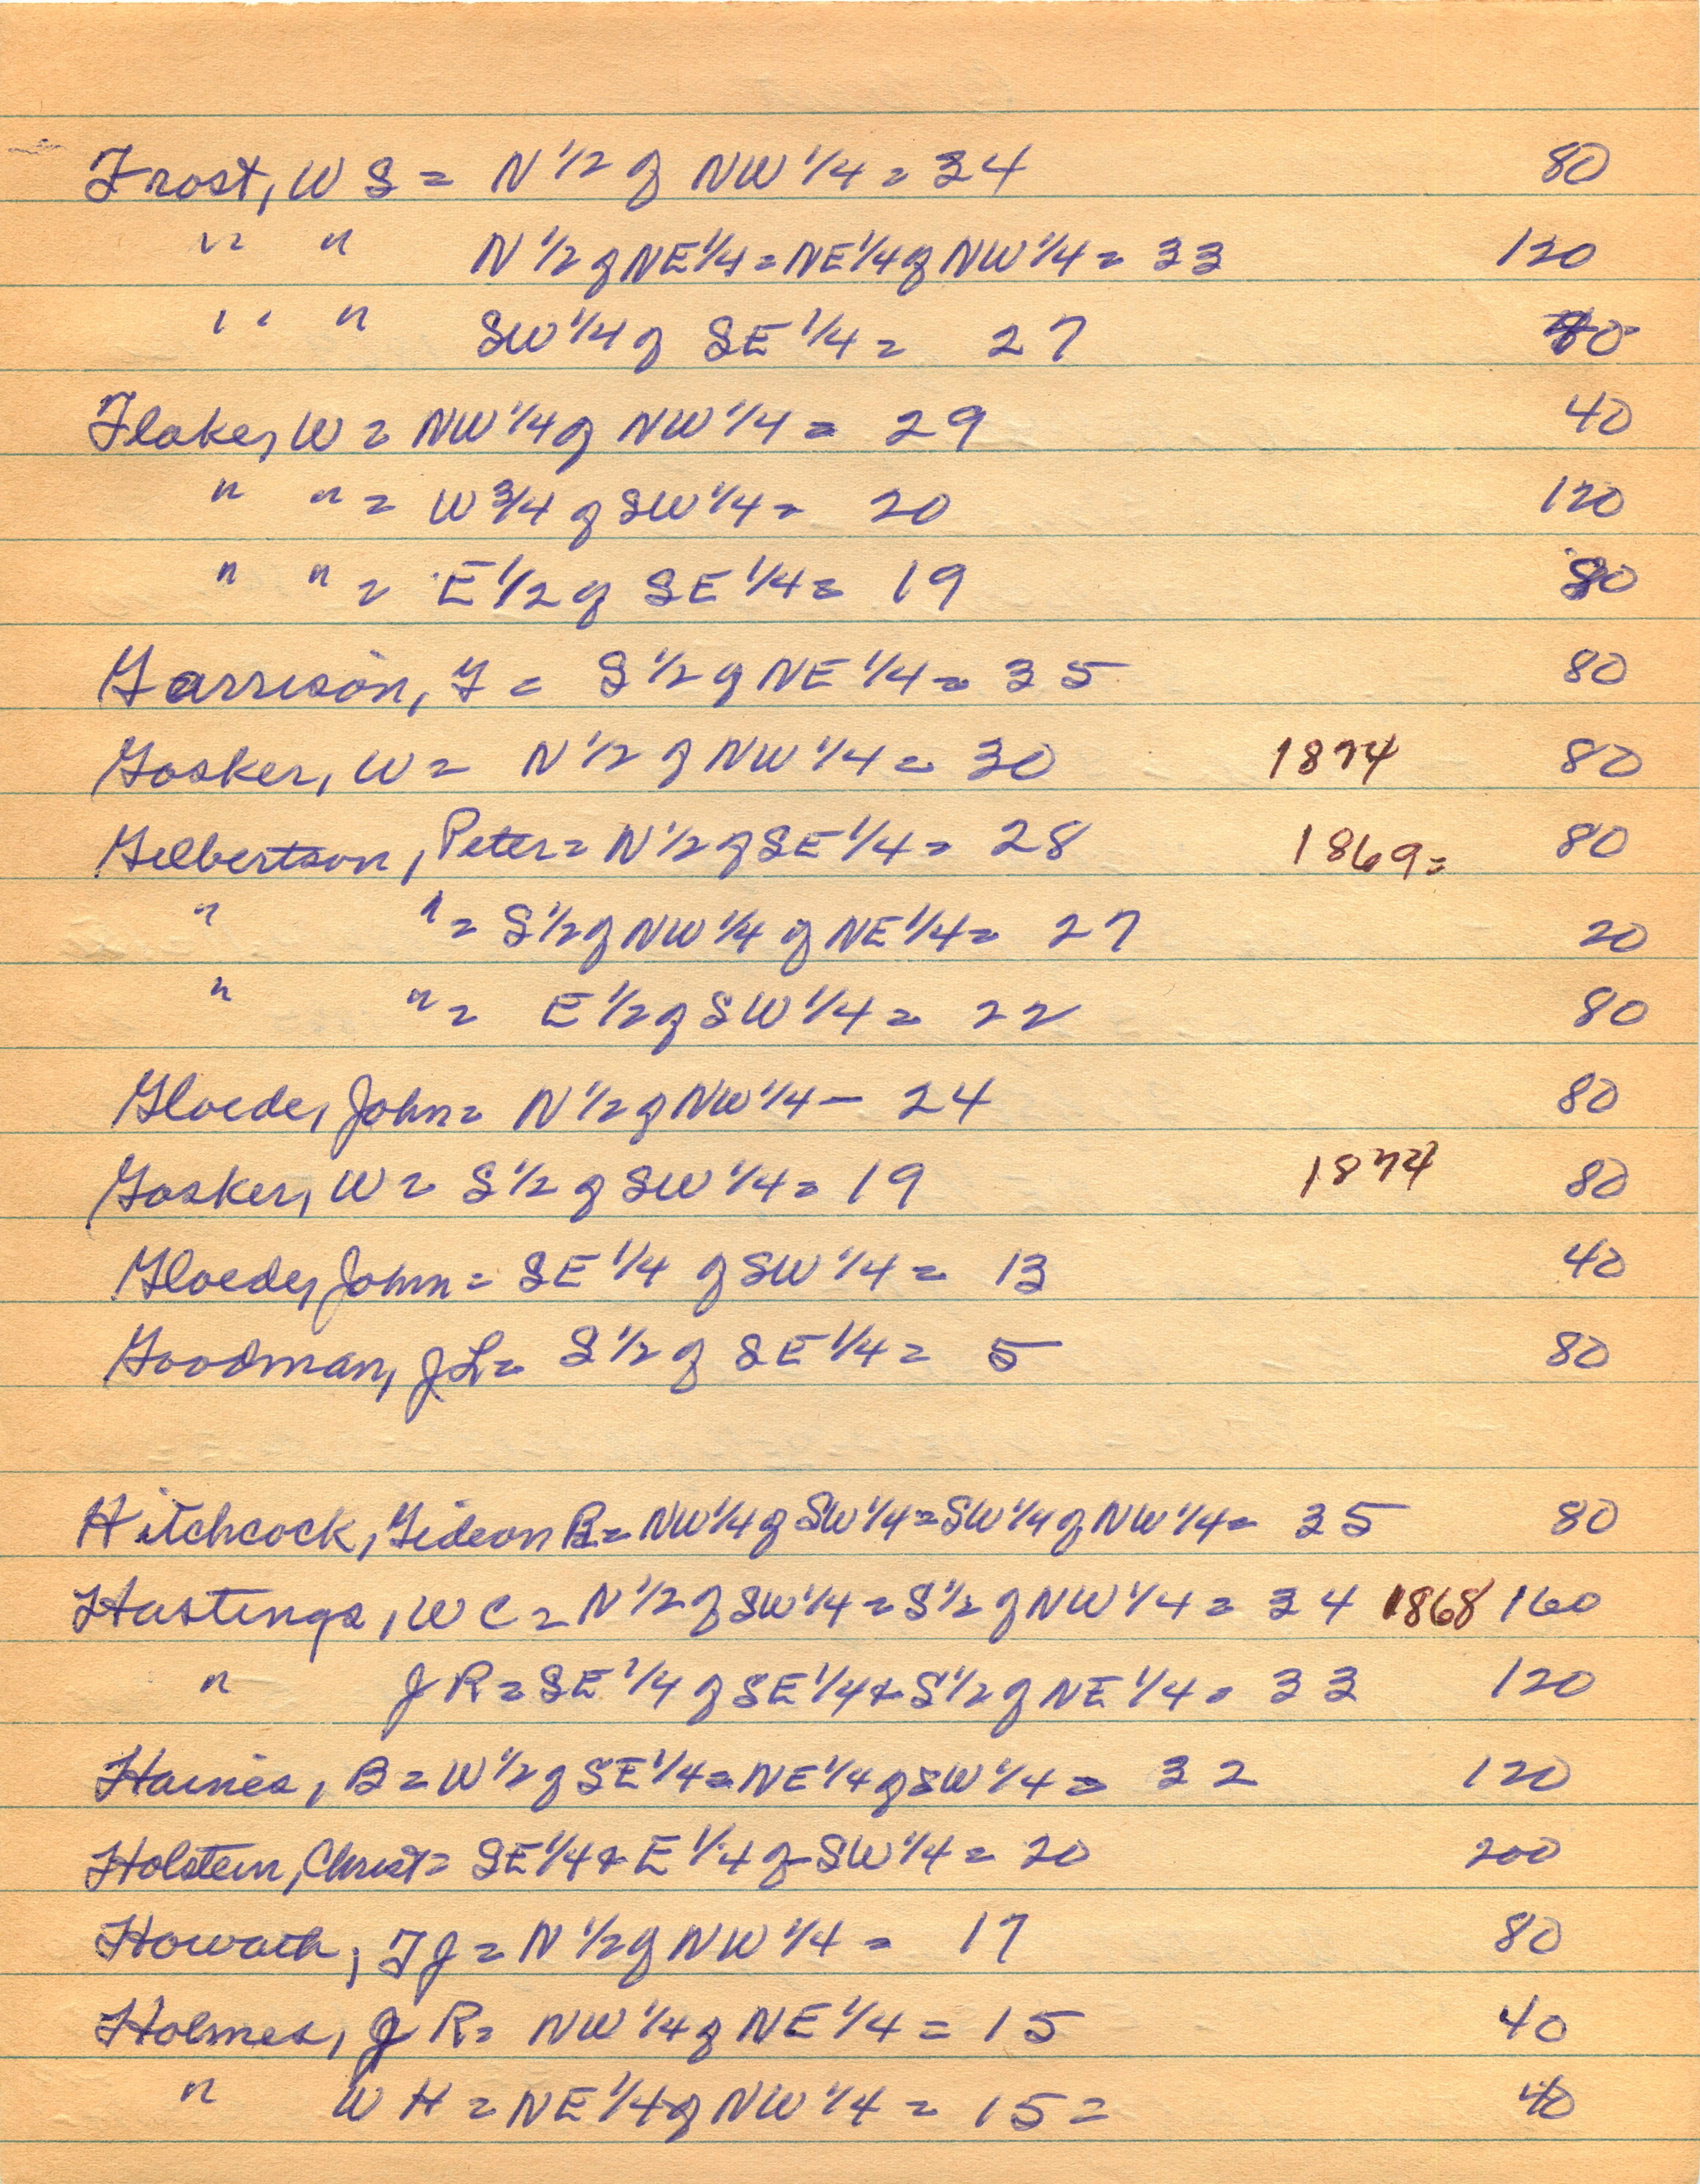 Frost, W S = N 1/2 of NW 1/4 = 34 80
" " N 1/2 of NE 1/4 = NE 1/4 of NW 1/4 = 33 120
" " SW 1/4 of SE 1/4 = 27 40
Flake, W = NW 1/4 of NW 1/4 = 29 40
" " = W 3/4 of SW 1/4 = 20 120
" " = E 1/2 of SE 1/4 = 19 80
Garrison, F = S 1/2 of NE 1/4 = 35 80
Gosker, W = N 1/2 of NW 1/4 = 30 1874 80
Gilbertson, Peter = N 1/2 of SE 1/4 = 28 1869 = 80
" " = S 1/2 of NW 1/4 of NE 1/4 = 27 20
" " = E 1/2 of SW 1/4 = 22 80
Gloede, John = N 1/2 of NW 1/4 - 24 80
Gosker, W = S 1/2 of SW 1/4 = 19 1874 80
Gloede, John = SE 1/4 of SW 1/4 = 13 40
Goodman, J L = S 1/2 of SE 1/4 = 5 80
Hitchcock, Gideon B = NW 1/4 of SW 1/4 = SW 1/4 of NW 1/4 = 35 80
Hastings, W C = N 1/2 of SW 1/4 = S 1/2 of NW 1/4 = 34 1868 160
" J R = SE 1/4 of SE 1/4 + S 1/2 of NE 1/4 = 33 120
Haines, B = W 1/2 of SE 1/4 = NE 1/4 of SW 1/4 = 32 120
Holstein, Christ = SE 1/4 + E 1/4 of SW 1/4 = 20 200
Howath, F J = N 1/2 of NW 1/4 = 17 80
Holmes, J R = NW 1/4 of NE 1/4 = 15 40
" W H = NE 1/4 of NW 1/4 = 15 = 40